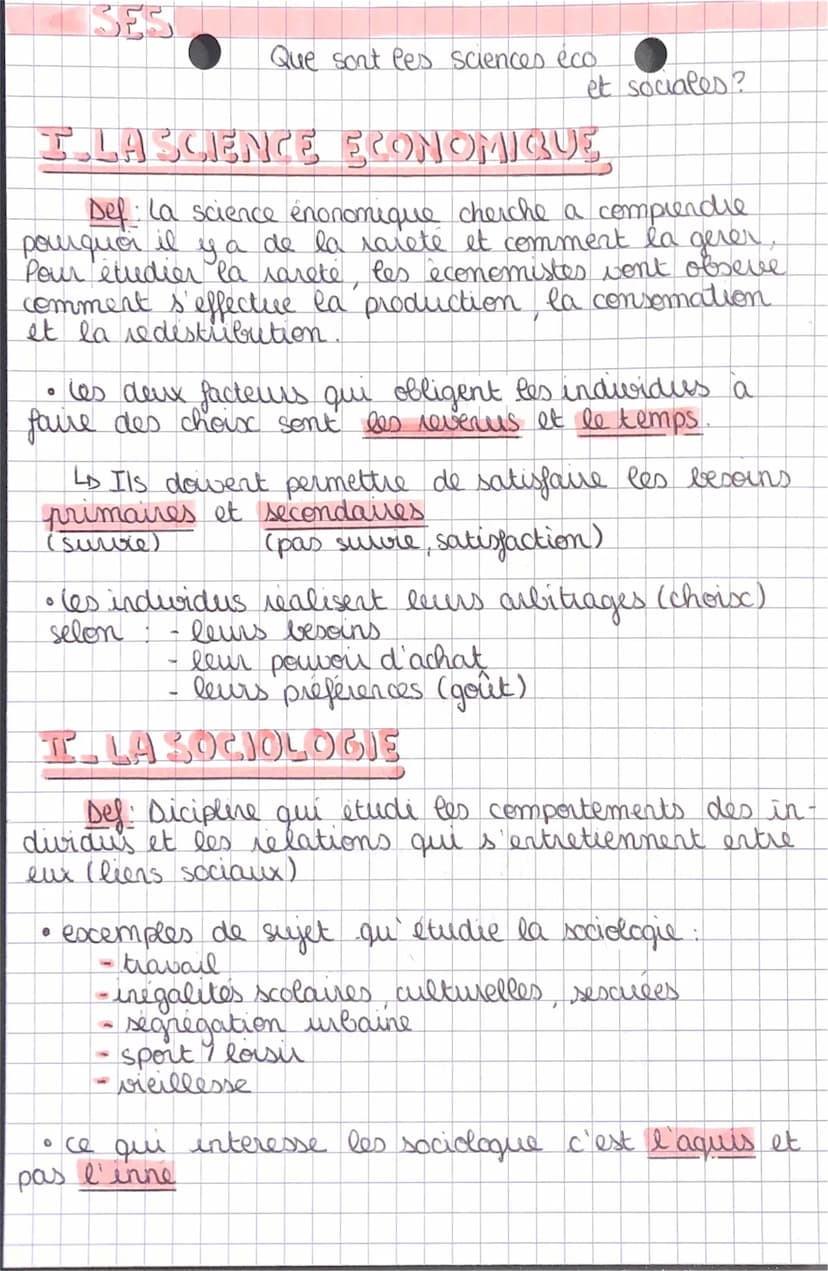 SES
Que sont les sciences éco
et sociales ?
I_LA SCIENCE ECONOMIQUE
Def : La science énonomique cherche a comprendre
pourquoi il y a de la rareté et comment la gerer,
Pour étudier la rareté, les économistes vont observé
comment s'effectue la production, la consomation
et la redistribution.
• Les deux facteurs qui obligent les individus à
faire des choix sont les revenus et le temps.
↳ Ils doivent permettre de satisfaire les besoins
primaires et secondaires
(survie) (pas survie, satisfaction)
• Les individus réalisent leurs arbitrages (choix)
selon : - leurs besoins
- leur pouvoir d'achat
- leurs préférences (goût)
II_ LA SOCIOLOGIE
Def : Dicipline qui étudi les comportements des in-
dividus et les relations qui s'entretiennent entre
eux (liens sociaux)
• exemples de sujet qu'étudie la sociologie :
- travail
- inégalités scolaires, culturelles, sexuées
- ségrégation urbaine
- sport / loisir
- vieillesse
• ce qui interesse les sociologue c'est l'aquis et
pas l'inné